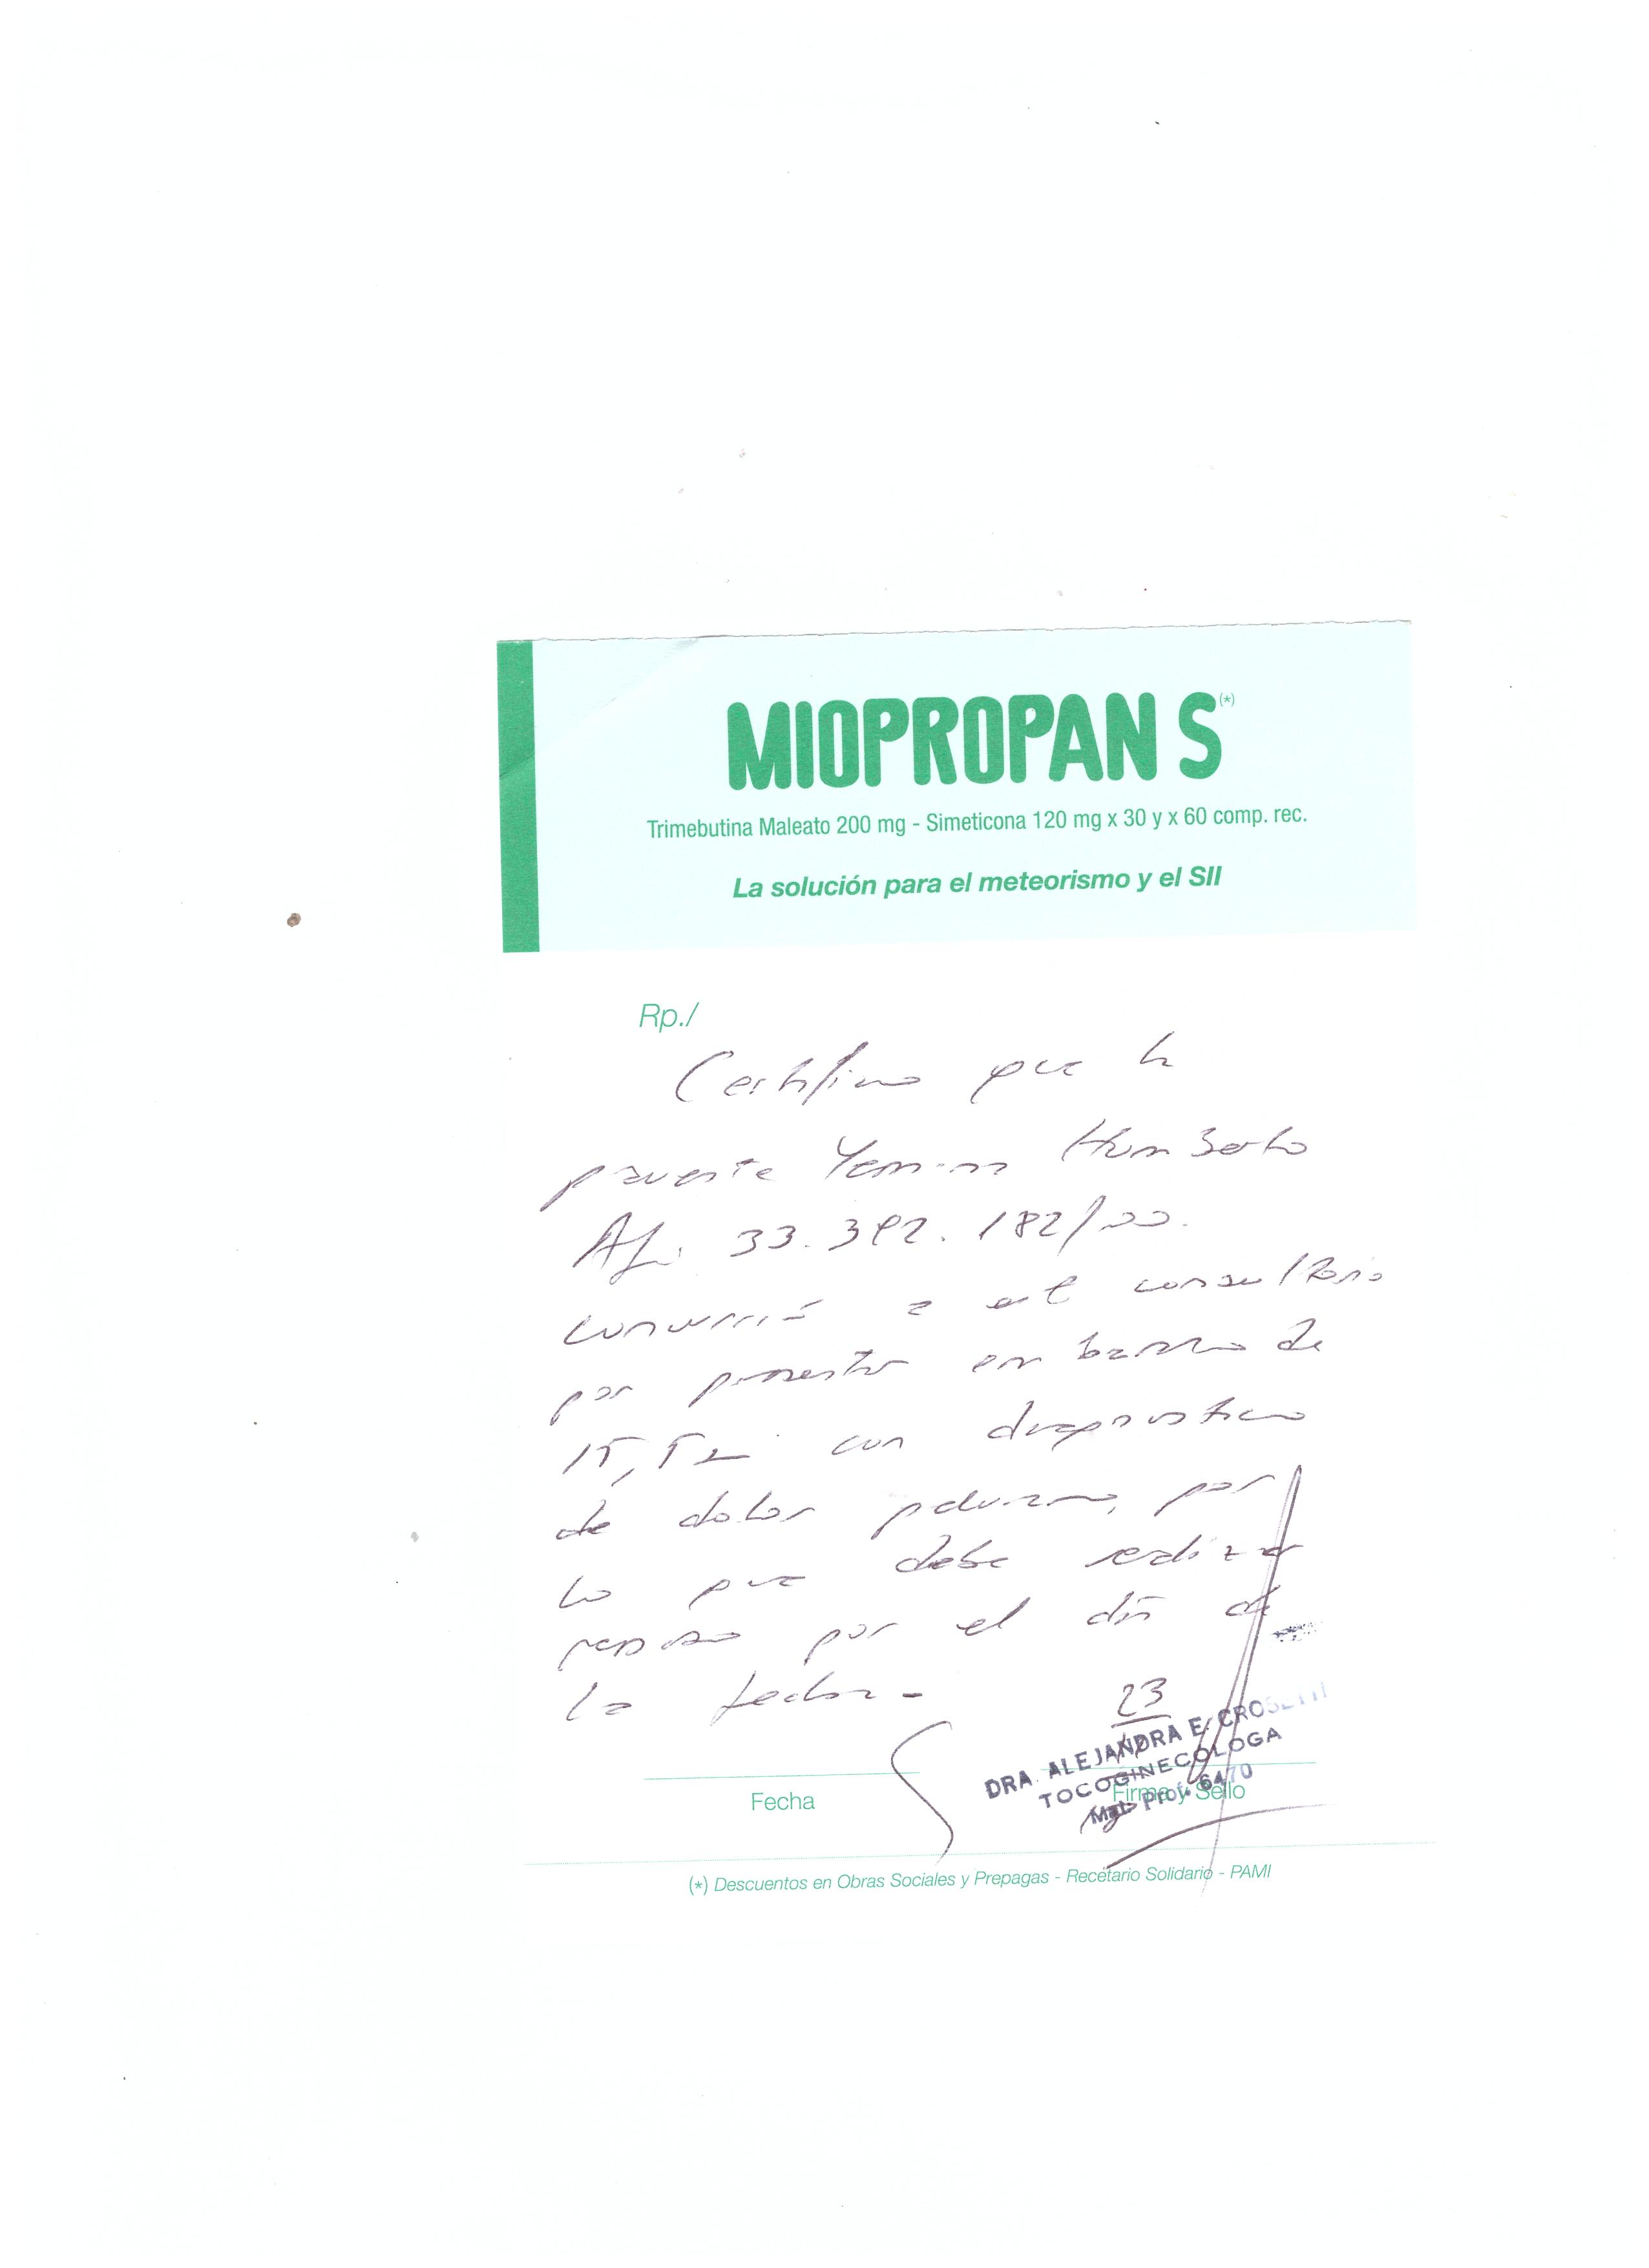 MIOPROPAN S(*)
Trimebutina Maleato 200 mg - Simeticona 120 mg x 30 y x 60 comp. rec.
La solución para el meteorismo y el SII
Rp./
Certifico que la
paciente Humberto
Af. 33.392.182/00.
concurrió a el consultorio
por presentar embarazo de
con diagnostico
de dolor pelviano, por
lo que debe realizar
reposo por el día de
la fecha -
23
DRA. ALEJANDRA E. CROSETTI
TOCOGINECÓLOGA
Mat. Prof. 6470
Fecha
Firma y Sello
(*) Descuentos en Obras Sociales y Prepagas - Recetario Solidario - PAMI